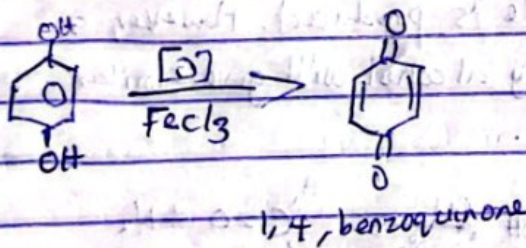 OH
[O]
FeCl3
OH
O
O
1,4, benzoquinone